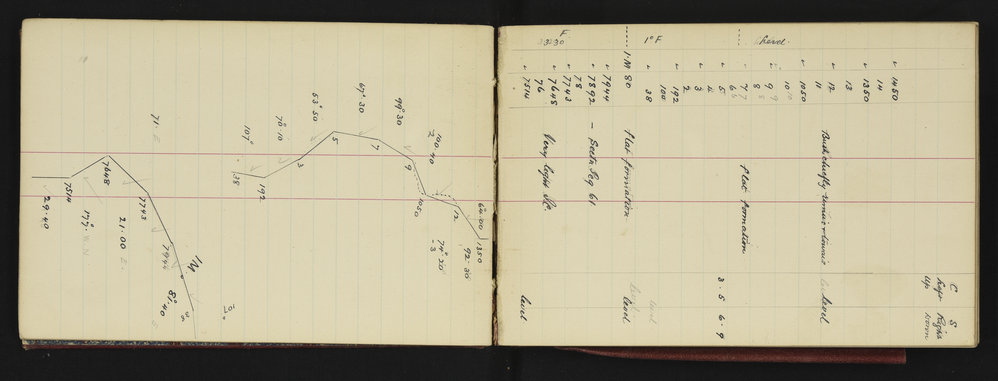 107°
70·10
53°50
67°·30
99°30
100·40
38
192
3
5
7
9
1050
12
64·00
1350
92·30
74°20
71· E
7648
7743
7514
29·40
177°
W.N
21·00 E
7944
1M
81·40
38
107°
C
S
Left
Right
Up
Down
level
1450
14
1350
13
12
11
1050
10
9
8
7
6
5
4
3
2
192
100
38
1·M 80
7944
7892
78
7743
7648
76
7514
1° F
F
Bush chiefly
level
flat formation
3 · 5 6 · 9
flat formation
level
level
– Beeth Peg 61
Very light
level